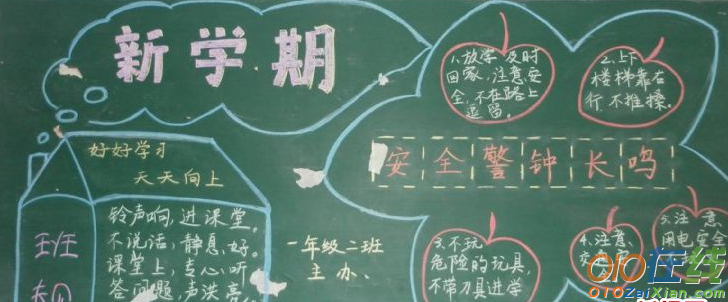 新学期
好好学习
天天向上
班
铃声响,进课堂。
不说话,静息好。
课堂上,专心听
答问题,声洪亮
一年级二班
主办、
1.放学及时
回家,注意安
全,不在路上
逗留。
2.上下
楼梯靠右
行不推搡。
安全警钟长鸣
3.不玩
危险的玩具,
不带刀具进学
4.注意
交
5.注意
用电安全
010在线
010ZaiXian.com